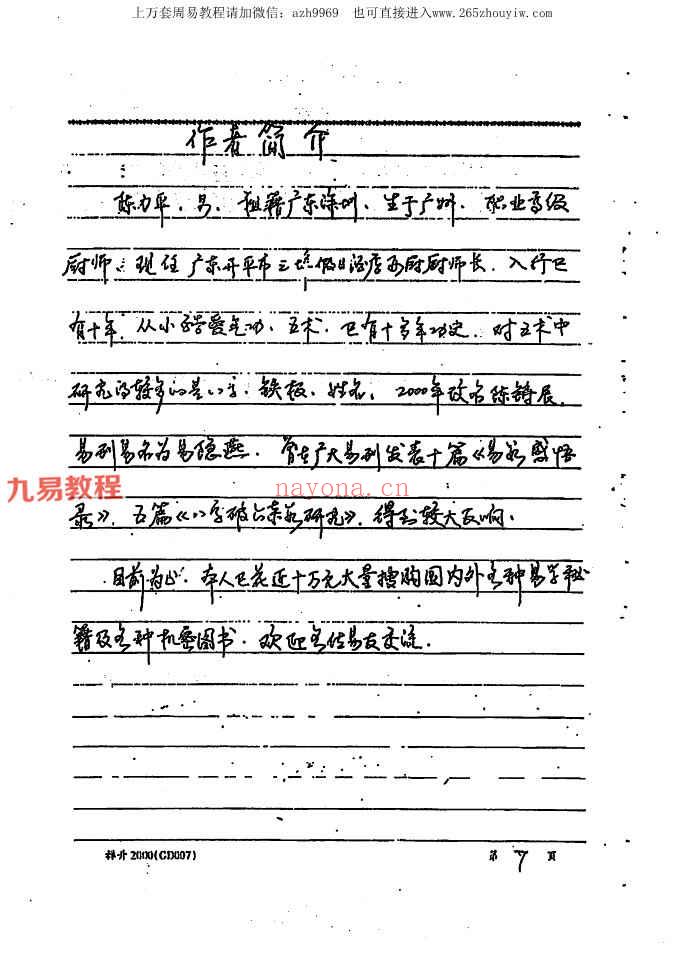 上万套周易教程请加微信：azh9969 也可直接进入www.265zhouyiw.com
作者简介
陈力平，男，祖籍广东深圳，生于广州，职业高级
厨师，现任广东开平市三埠假日酒店西厨厨师长，入行已
有十年，从小酷爱气功、五术，已有十多年功史，对五术中
研究得较多的是八字、铁板、姓名，2000年改名陈铸展，
易刊易名为易隐燕，曾在广大易刊发表十篇《易教感悟
九易教程
nayona.cn
录》，五篇《八字破 研究》，得到较大反响。
目前为止，本人已花近十万元大量搜购国内外各种易学秘
籍及各种机密图书，欢迎各位易友交流。
祥升2000(GD007)
第 7 页